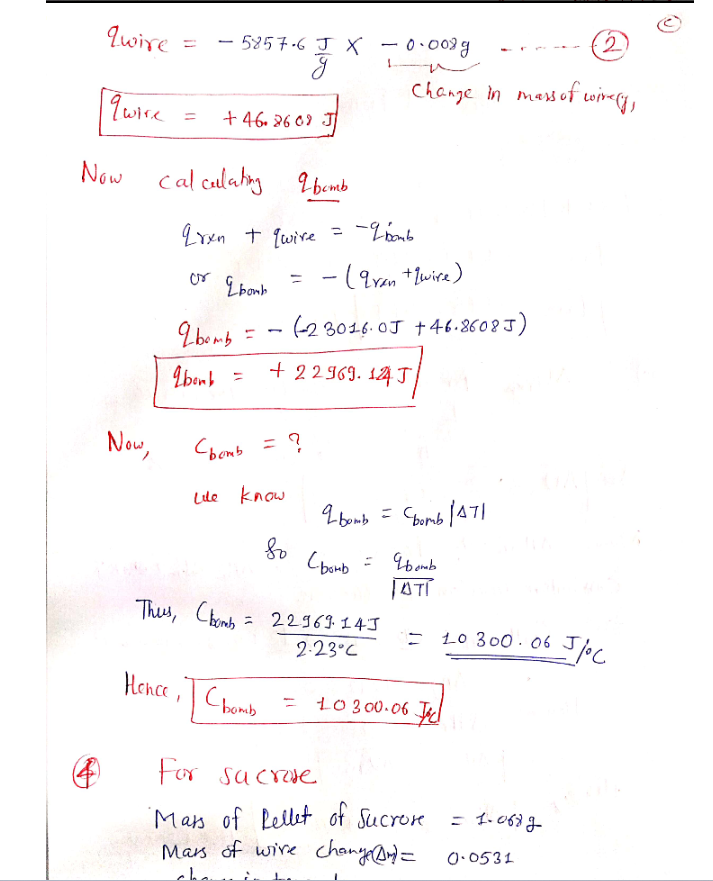 (c)
qwire = - 5857.6 J/g X - 0.008g ------ (2)
Change in mass of wire
qwire = + 46.8608 J
Now calculating qbomb
qrxn + qwire = -qbomb
or qbomb = - (qrxn + qwire)
qbomb = - (-23016.0J + 46.8608J)
qbomb = + 22969.14 J
Now, Cbomb = ?
We know
qbomb = Cbomb |ΔT|
So Cbomb = qbomb / |ΔT|
Thus, Cbomb = 22969.14J / 2.23°C = 10300.06 J/°C
Hence, Cbomb = 10300.06 J/°C
(4) For sucrose
Mass of Pellet of Sucrose = 1.068g
Mass of wire change(Δm) = 0.0531